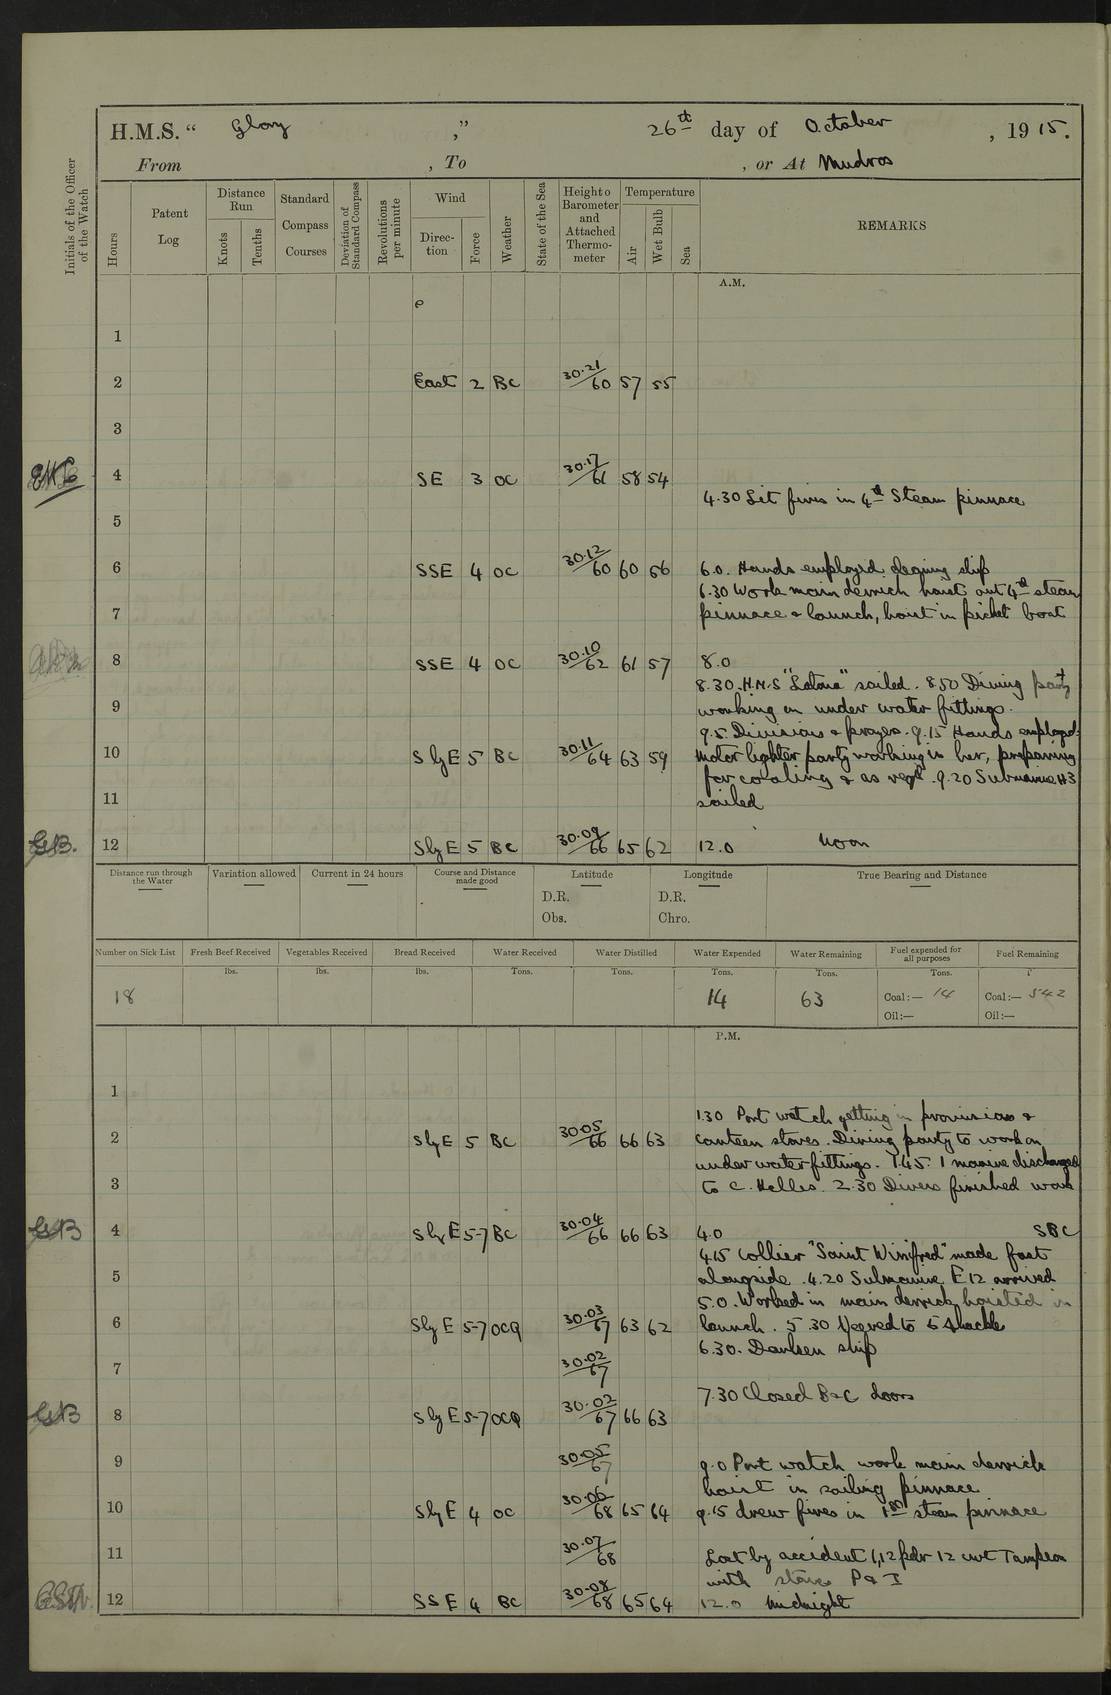 H.M.S. “ Glory ,” 26th day of October , 1915.
From , To , or At Mudros
Initials of the Officer of the Watch
Hours
Patent Log
Distance Run
Knots
Tenths
Standard Compass Courses
Deviation of Standard Compass
Revolutions per minute
Wind
Direc- tion
Force
Weather
State of the Sea
Height o Barometer and Attached Thermo- meter
Temperature
Air
Wet Bulb
Sea
REMARKS
A.M.
1
2 East 2 BC 30.21/60 57 55
3
4 SE 3 OC 30.17/61 58 54
4.30 Lit fires in 4th Steam pinnace
5
6 SSE 4 OC 30.12/60 60 56 6.0. Hands employed cleaning ship
6.30 Work main derrick hoist out 4th steam
7 pinnace & launch, hoist in picket boat
8 SSE 4 OC 30.10/62 61 57 8.0
8.30. H.M.S "Latona" sailed. 8.50 Diving party
9 working on under water fittings.
9.5 Divisions & prayers. 9.15 Hands employed:
10 SlyE 5 BC 30.11/64 63 59 Motor lighter party working in her, preparing
for coaling & as reqd. 9.20 Submarine H3
11 sailed
GB. 12 SlyE 5 BC 30.09/66 65 62 12.0 Noon
Distance run through the Water
Variation allowed
Current in 24 hours
Course and Distance made good
Latitude
D.R.
Obs.
Longitude
D.R.
Chro.
True Bearing and Distance
Number on Sick List
Fresh Beef Received
Vegetables Received
Bread Received
Water Received
Water Distilled
Water Expended
Water Remaining
Fuel expended for all purposes
Fuel Remaining
lbs. lbs. lbs. Tons. Tons. Tons. Tons. Tons. T
18 14 63 Coal:— 14 Coal:— 542
Oil:— Oil:—
P.M.
1
1.30 Port watch getting in provisions &
2 SlyE 5 BC 30.05/66 66 63 canteen stores. Diving party to work on
under water fittings. 1.45. 1 marine discharged
3 to C. Helles. 2.30 Divers finished work
GB 4 SlyE 5-7 BC 30.04/66 66 63 4.0 SBC
4.15 Collier "Saint Winifred" made fast
5 alongside. 4.20 Submarine E12 arrived
5.0. Worked in main derrick hoisted in
6 SlyE 5-7 OCQ 30.03/67 63 62 launch. 5.30 Veered to 5 shackle
6.30. Darken ship
7 30.02/67
7.30 Closed B & C doors
GB 8 SlyE 5-7 OCQ 30.02/67 66 63
9 30.05/67 9.0 Port watch work main derrick
hoist in sailing pinnace
10 SlyE 4 OC 30.06/68 65 64 9.15 drew fires in 1st steam pinnace
11 30.07/68 Lost by accident 1, 12 pdr 12 cwt Tampeon
with P & I
12 SSE 4 BC 30.08/68 65 64 12.0 Midnight